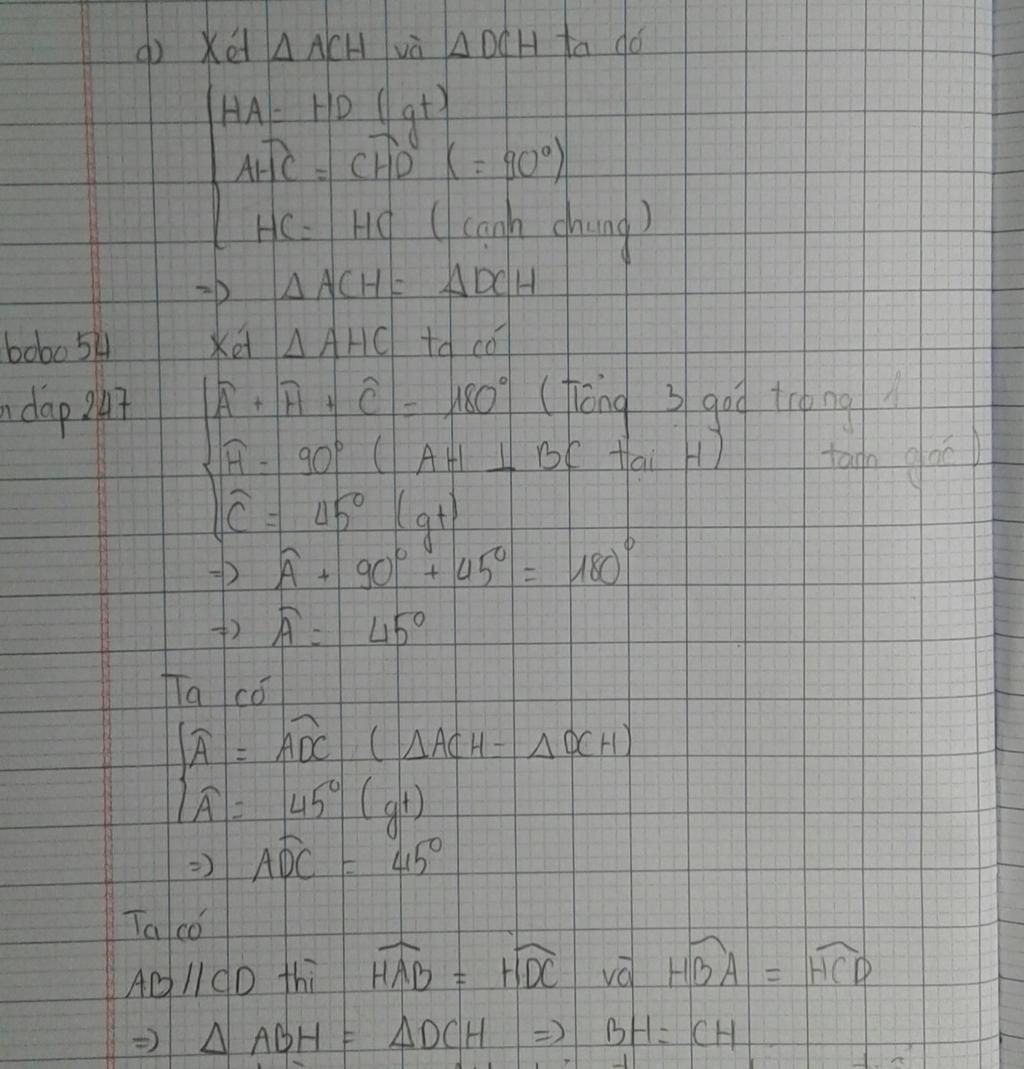 d) Xét Δ ACH và Δ DCH ta có
HA = HD (gt)
AHC = CHD (= 90°)
HC = HC (cạnh chung)
=> Δ ACH = Δ DCH
bobo54 Xét Δ AHC ta có
đáp247 Â + Ĥ + Ĉ = 180° (Tổng 3 góc trong 1
Ĥ = 90° (AH ⊥ BC tại H) tam giác)
Ĉ = 45° (gt)
=> Â + 90° + 45° = 180°
=> Â = 45°
Ta có
Â = ADC (Δ ACH = Δ DCH)
Â = 45° (gt)
=> ADC = 45°
Ta có
AB // CD thì HAB = HDC và HBA = HCD
=> Δ ABH = Δ DCH => BH = CH